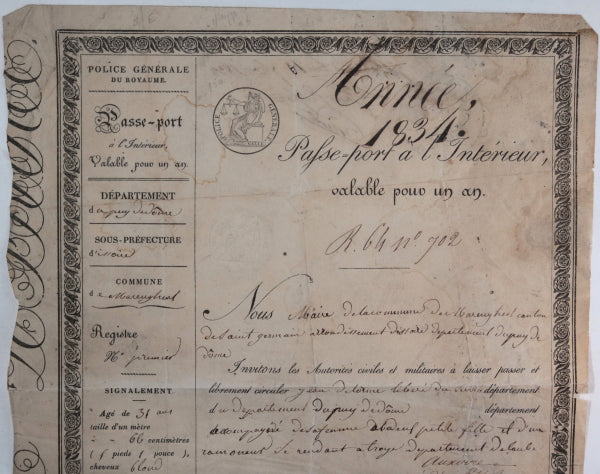 POLICE GÉNÉRALE
DU ROYAUME.
Passe-port
à l'Intérieur,
Valable pour un an.
DÉPARTEMENT
du puy de dôme
SOUS-PRÉFECTURE
d'issoire
COMMUNE
de Mareugheol
Registre
N.º premier
SIGNALEMENT
Agé de 31 ans
taille d'un mètre
66 centimètres
( 5 pieds 1 pouce ),
cheveux blond
POLICE GÉNÉRALE
Année,
1834.
Passe-port à l'Intérieur,
valable pour un an.
R. 64 nº 702
Nous Maire de la commune de Mareugheol canton
de Saint germain arrondissement d'issoire département du puy de
dôme
Invitons les Autorités civiles et militaires à laisser passer et
librement circuler département
du département du puy de dôme département
accompagné de sa femme petite fille et d'un
se rendant a troye departement de l'aube